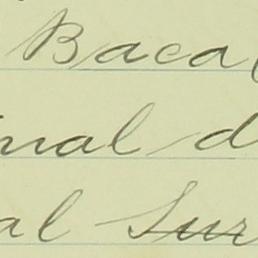 Baca
nal d
al Sur